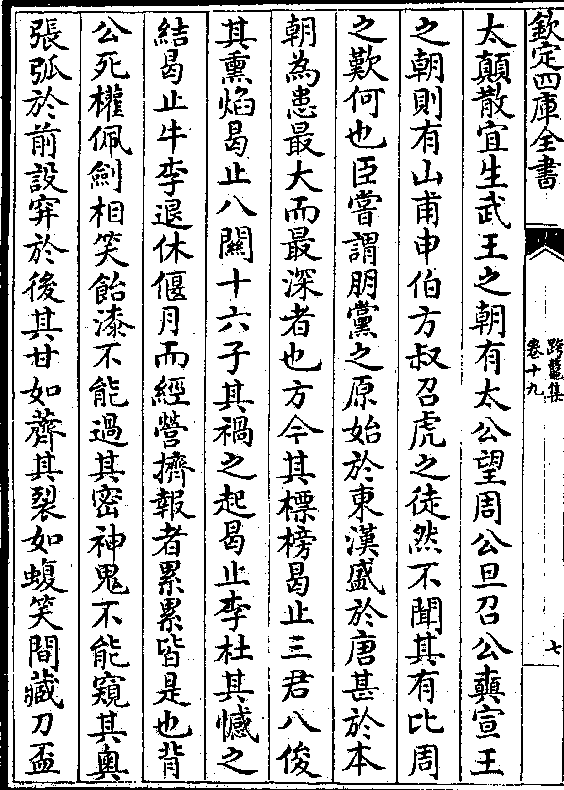 欽定四庫全書
跨鼇集
卷十九
七
太顛散宜生武王之朝有太公望周公旦召公奭宣王
之朝則有山甫申伯方叔召虎之徒然不聞其有比周
之歎何也臣嘗謂朋黨之原始於東漢盛於唐甚於本
朝為患最大而最深者也方今其標榜曷止三君八俊
其熏焰曷止八關十六子其禍之起曷止李杜其憾之
結曷止牛李退休偃月而經營擠報者累累皆是也背
公死權佩劍相笑飴漆不能過其密神鬼不能窺其奥
張弧於前設穽於後其甘如薺其裂如蝮笑間藏刀盃